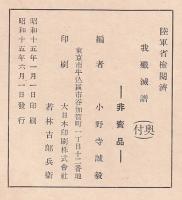 陸軍省檢閱濟
我殲滅譜
奧付
非賣品
編者 小野寺誠毅
東京市牛込區市谷加賀町一丁目十二番地
印刷 大日本印刷株式會社
若林吉郎兵衛
昭和十五年一月一日印刷
昭和十五年六月一日發行